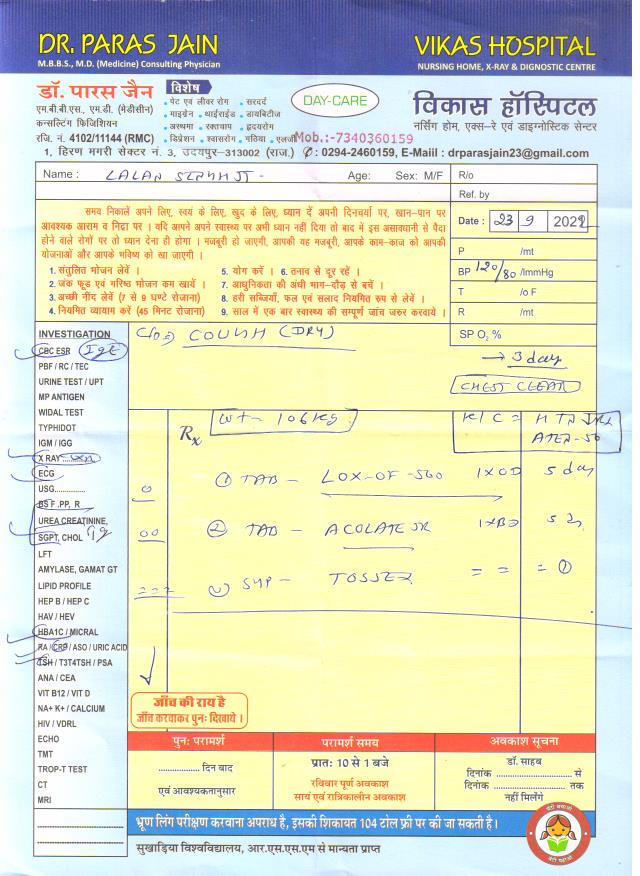 DR. PARAS JAIN
M.B.B.S., M.D. (Medicine) Consulting Physician
VIKAS HOSPITAL
NURSING HOME, X-RAY & DIGNOSTIC CENTRE
डॉ. पारस जैन
एम.बी.बी.एस., एम.डी. (मेडीसीन)
कन्सल्टिंग फिजिशियन
रजि. नं. 4102/11144 (RMC)
विशेष
• पेट एवं लीवर रोग • सरदर्द
• माइग्रेन • थाईराईड • डायबिटीज
• अस्थमा • रक्तचाप • हृदयरोग
• डिप्रेशन • श्वासरोग • गठिया • एलर्जी
DAY-CARE
Mob.:-7340360159
विकास हॉस्पिटल
नर्सिंग होम, एक्स-रे एवं डाइग्नोस्टिक सेन्टर
1, हिरण मगरी सेक्टर नं. 3, उदयपुर-313002 (राज.) : 0294-2460159, E-Maiil : drparasjain23@gmail.com
Name : LALAN
Age: Sex: M/F
R/o
Ref. by
समय निकालें अपने लिए, स्वयं के लिए, खुद के लिए, ध्यान दें अपनी दिनचर्या पर, खान-पान पर
आवश्यक आराम व निद्रा पर । यदि आपने अपने स्वास्थ्य पर अभी ध्यान नहीं दिया तो बाद में इस असावधानी से पैदा
होने वाले रोगों पर तो ध्यान देना ही होगा । मजबूरी हो जाएगी, आपकी यह मजबूरी, आपके काम-काज को आपकी
योजनाओं और आपके भविष्य को खा जाएगी ।
1. संतुलित भोजन लेवें ।
2. जंक फूड एवं गरिष्ठ भोजन कम खायें ।
3. अच्छी नींद लेवें (7 से 9 घण्टे रोजाना)
4. नियमित व्यायाम करें (45 मिनट रोजाना)
5. योग करें । 6. तनाव से दूर रहें ।
7. आधुनिकता की अंधी भाग-दौड़ से बचें ।
8. हरी सब्जियाँ, फल एवं सलाद नियमित रुप से लेवें ।
9. साल में एक बार स्वास्थ्य की सम्पूर्ण जाँच जरुर करवाये ।
Date : 23 9 2022
P /mt
BP 120/80 /lmmHg
T /o F
R /mt
SP O2 %
INVESTIGATION
CBC ESR IgE
PBF / RC / TEC
URINE TEST / UPT
MP ANTIGEN
WIDAL TEST
TYPHIDOT
IGM / IGG
X RAY
ECG
USG..............
BS F .PP, R
UREA CREATININE,
SGPT, CHOL
LFT
AMYLASE, GAMAT GT
LIPID PROFILE
HEP B / HEP C
HAV / HEV
HBA1C / MICRAL
RA / CRP / ASO / URIC ACID
TSH / T3T4TSH / PSA
ANA / CEA
VIT B12 / VIT D
NA+ K+ / CALCIUM
HIV / VDRL
ECHO
TMT
TROP-T TEST
CT
MRI
C/o COUGH (DRY)
→ 3 day
CHEST CLEAR
Rx
Wt - 106 Kg
K/C = HTN
ATEN-50
① TAB - LOX-OF-500 1XOD 5 day
② TAB - ACOLATE JR 1XBD 5
SYP - TOSSEX = = = ①
जाँच की राय है
जाँच करवाकर पुनः दिखाये ।
पुनः परामर्श
................ दिन बाद
एवं आवश्यकतानुसार
परामर्श समय
प्रातः 10 से 1 बजे
रविवार पूर्ण अवकाश
सायं एवं रात्रिकालीन अवकाश
अवकाश सूचना
डॉ. साहब
दिनांक ........................ से
दिनांक ........................ तक
नहीं मिलेंगे
भ्रूण लिंग परीक्षण करवाना अपराध है, इसकी शिकायत 104 टोल फ्री पर की जा सकती है ।
सुखाड़िया विश्वविद्यालय, आर.एस.एस.एम से मान्यता प्राप्त
बेटी बचाओ
बेटी पढ़ाओ